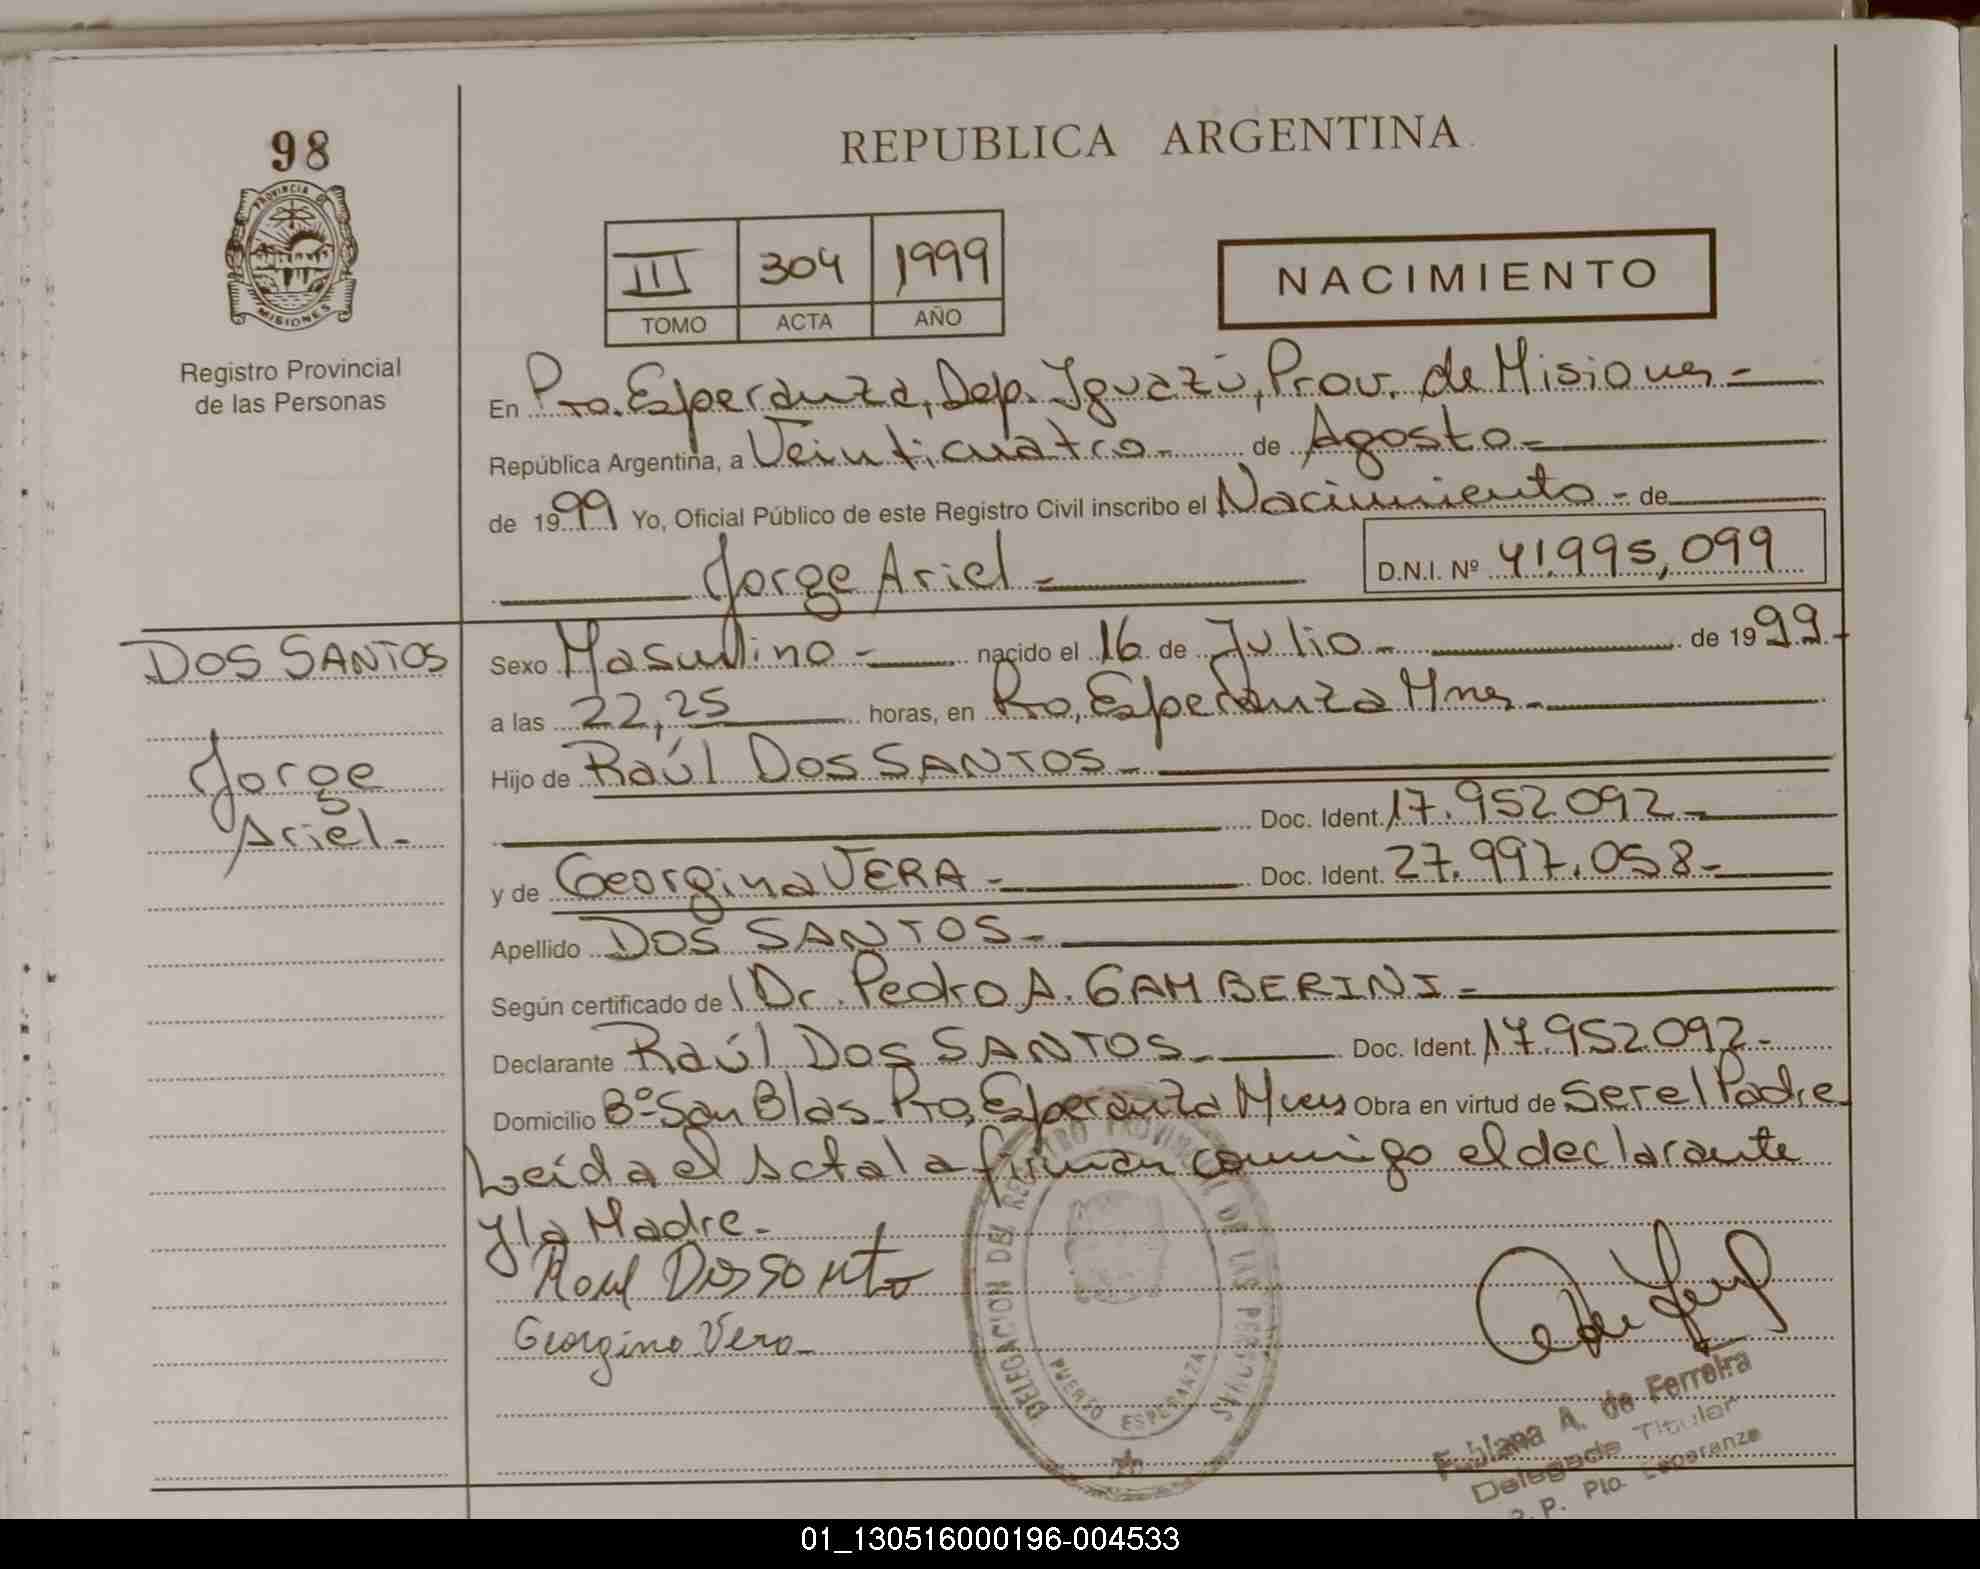 98
REPUBLICA ARGENTINA
PROVINCIA DE
MISIONES
Registro Provincial
de las Personas
III 304 1999
TOMO ACTA AÑO
NACIMIENTO
En Pto. Esperanza, Dep. Iguazú, Prov. de Misiones -
República Argentina, a Veinticuatro - de Agosto -
de 1999 Yo, Oficial Público de este Registro Civil inscribo el Nacimiento - de
Jorge Ariel - D.N.I. Nº 41.995,099
DOS SANTOS
Jorge
Ariel -
Sexo Masculino - nacido el 16 de Julio - de 1999 -
a las 22,25 horas, en Pto, Esperanza Mnes -
Hijo de Raúl DOS SANTOS -
Doc. Ident. 17.952092 -
y de Georgina VERA - Doc. Ident. 27.997.058 -
Apellido DOS SANTOS -
Según certificado de Dr. Pedro A. GAMBERINI -
Declarante Raúl DOS SANTOS - Doc. Ident. 17.952092 -
Domicilio Bº San Blas - Pto, Esperanza Mnes Obra en virtud de Ser el Padre
Leída el Acta la firman conmigo el declarante
y la Madre -
Raul Dos Santo
Georgina Vera
DELEGACION DEL REGISTRO PROVINCIAL DE LAS PERSONAS
PUERTO ESPERANZA
Fabiana A. de Ferreira
Delegada Titular
R. P. Pto. Esperanza
01_130516000196-004533